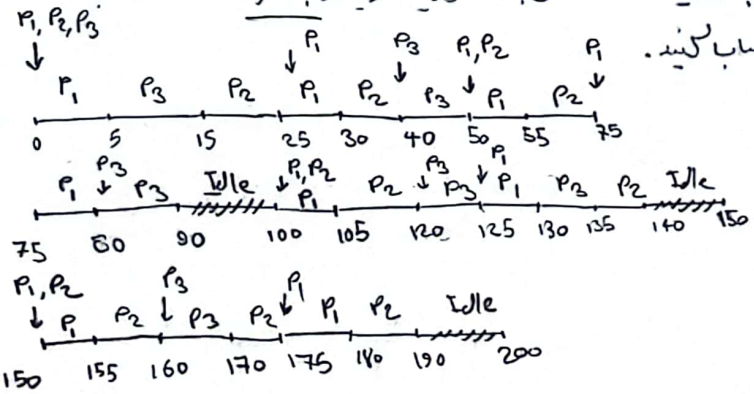 P₁, P₂, P₃ ↓ P₁ ↓ P₃ ↓ P₁, P₂ ↓ P₁ ↓ کنید.
P₁ P₃ P₂ P₁ P₂ P₃ P₁ P₂
0 5 15 25 30 40 50 55 75
P₃ ↓ P₁, P₂ ↓ P₃ ↓ P₁ ↓
P₁ P₃ Idle P₁ P₂ P₃ P₁ P₃ P₂ Idle
75 80 90 100 105 120 125 130 135 140 150
P₁, P₂ ↓ P₃ ↓ P₁ ↓
P₁ P₂ P₃ P₂ P₁ P₂ Idle
150 155 160 170 175 180 190 200